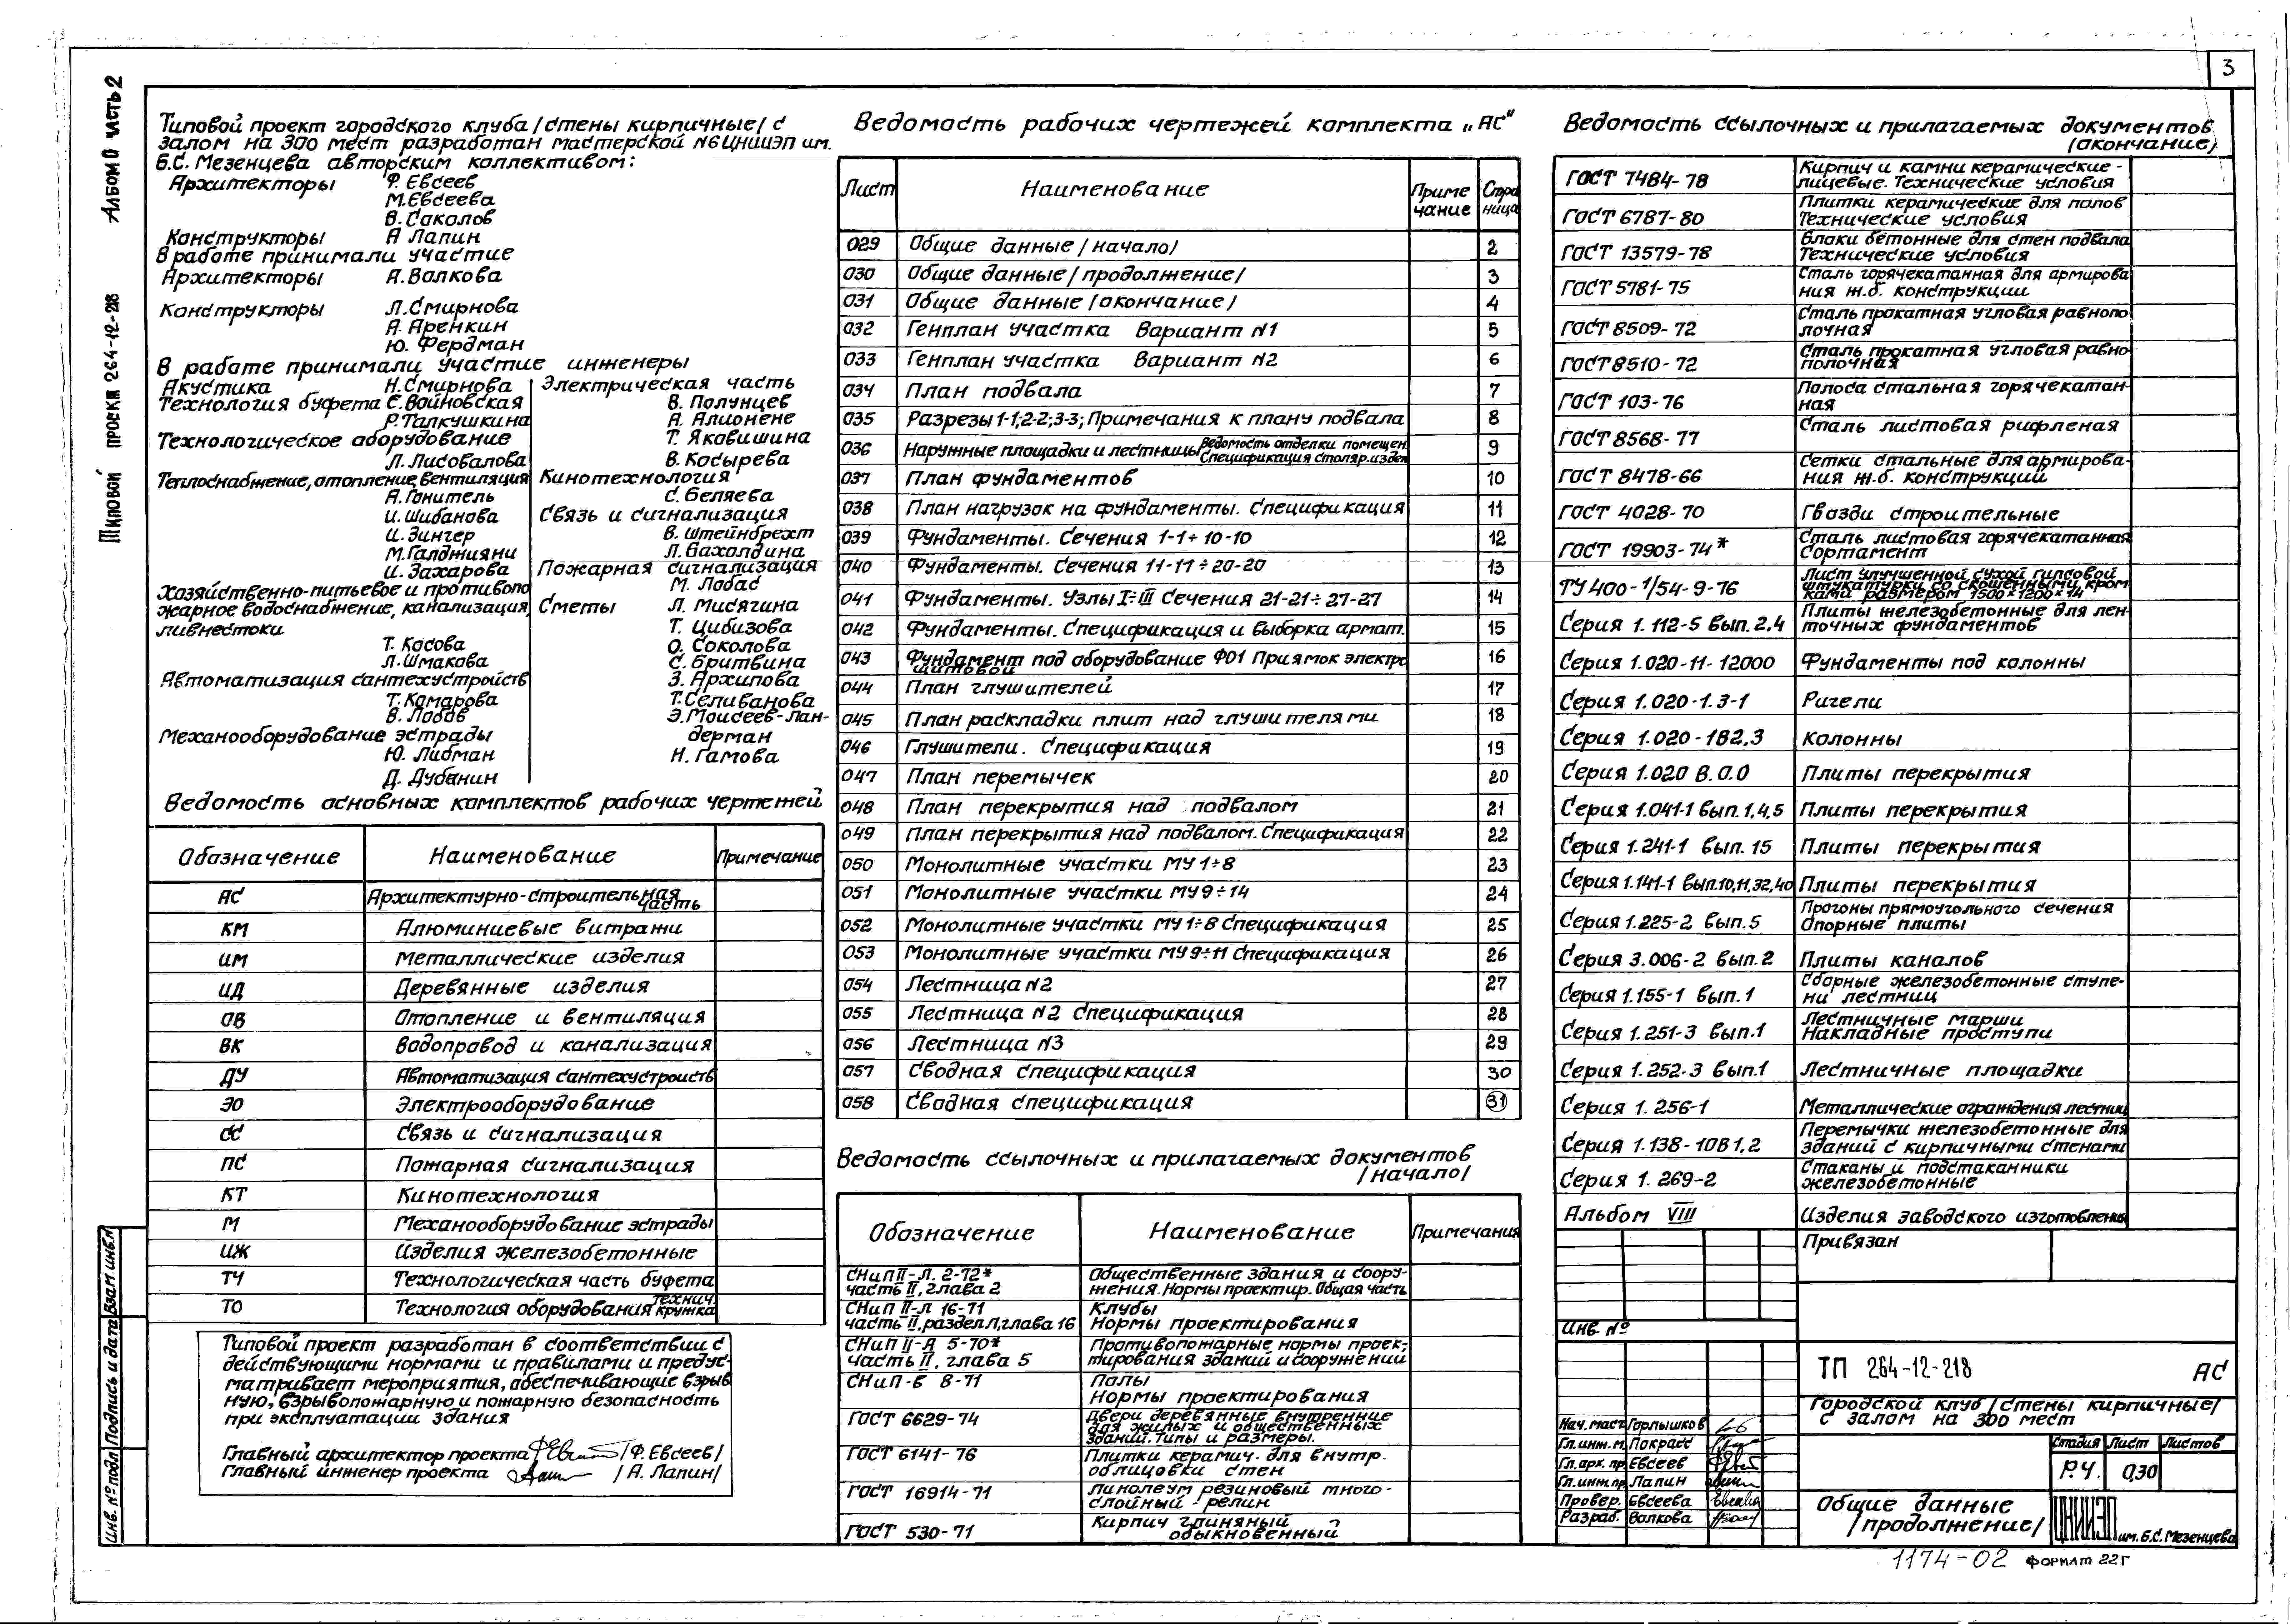 3
Альбом 0 часть 2
Типовой проект 264-12-218
Типовой проект городского клуба /стены кирпичные/ с
залом на 300 мест разработан мастерской №6 ЦНИИЭП им.
Б.С. Мезенцева авторским коллективом:
Архитекторы Ф. Евсеев
М. Евсеева
В. Соколов
Конструкторы А Лапин
В работе принимали участие
Архитекторы А. Волкова
Конструкторы Л. Смирнова
А. Аренкин
Ю. Фердман
В работе принимали участие инженеры
Акустика Н. Смирнова
Технология буфета Е. Войновская
Р. Талкушкина
Технологическое оборудование
Л. Лисовалова
Теплоснабжение, отопление, вентиляция
А. Гонитель
И. Шибанова
И. Зингер
М. Галджияни
И. Захарова
Хозяйственно-питьевое и противопо
жарное водоснабжение, канализация,
ливнестоки
Т. Косова
Л. Шмакова
Автоматизация сантехустройств
Т. Комарова
В. Лобов
Механооборудование эстрады
Ю. Либман
Д. Дубанин
Электрическая часть
В. Полунцев
А. Алионене
Т. Яковишина
В. Косырева
Кинотехнология
С. Беляева
Связь и сигнализация
В. Штейнбрехт
Л. Вахолдина
Пожарная сигнализация
М. Лобас
Сметы Л. Мисягина
Т. Цибизова
О. Соколова
С. Бритвина
З. Архипова
Т. Селиванова
Э. Моисеев-Лан-
дерман
Н. Гамова
Ведомость основных комплектов рабочих чертежей
Обозначение Наименование Примечание
АС Архитектурно-строительная часть
КМ Алюминиевые витражи
ИМ Металлические изделия
ИД Деревянные изделия
ОВ Отопление и вентиляция
ВК Водопровод и канализация
ДУ Автоматизация сантехустройств
ЭО Электрооборудование
СС Связь и сигнализация
ПС Пожарная сигнализация
КТ Кинотехнология
М Механооборудование эстрады
ИЖ Изделия железобетонные
ТЧ Технологическая часть буфета
ТО Технология оборудования технич. кружка
Типовой проект разработан в соответствии с
действующими нормами и правилами и предус-
матривает мероприятия, обеспечивающие взрыв
ную, взрывопожарную и пожарную безопасность
при эксплуатации здания
Главный архитектор проекта /Ф. Евсеев/
Главный инженер проекта /А. Лапин/
Ведомость рабочих чертежей комплекта „АС"
Лист Наименование Приме чание Стра ница
029 Общие данные /начало/ 2
030 Общие данные /продолжение/ 3
031 Общие данные /окончание/ 4
032 Генплан участка Вариант №1 5
033 Генплан участка Вариант №2 6
034 План подвала 7
035 Разрезы 1-1; 2-2; 3-3; Примечания к плану подвала 8
036 Наружные площадки и лестницы Ведомость отделки помещен. Спецификация столяр. издел 9
037 План фундаментов 10
038 План нагрузок на фундаменты. Спецификация 11
039 Фундаменты. Сечения 1-1÷10-10 12
040 Фундаменты. Сечения 11-11÷20-20 13
041 Фундаменты. Узлы I÷III Сечения 21-21÷27-27 14
042 Фундаменты. Спецификация и выборка армат. 15
043 Фундамент под оборудование Ф01 Приямок электро щитовой 16
044 План глушителей 17
045 План раскладки плит над глушителями 18
046 Глушители. Спецификация 19
047 План перемычек 20
048 План перекрытия над подвалом 21
049 План перекрытия над подвалом. Спецификация 22
050 Монолитные участки МУ1÷8 23
051 Монолитные участки МУ9÷14 24
052 Монолитные участки МУ1÷8 Спецификация 25
053 Монолитные участки МУ9÷11 Спецификация 26
054 Лестница №2 27
055 Лестница №2 Спецификация 28
056 Лестница №3 29
057 Сводная спецификация 30
058 Сводная спецификация 31
Ведомость ссылочных и прилагаемых документов
/начало/
Обозначение Наименование Примечания
СНиП II-Л. 2-72* Общественные здания и соору-
часть II, глава 2 жения. Нормы проектир. Общая часть
СНиП II-Л 16-71 Клубы
часть II, раздел Л, глава 16 Нормы проектирования
СНиП II-А 5-70* Противопожарные нормы проек-
часть II, глава 5 тирования зданий и сооружений
СНиП-В 8-71 Полы
Нормы проектирования
ГОСТ 6629-74 Двери деревянные внутренние
для жилых и общественных
зданий. Типы и размеры.
ГОСТ 6141-76 Плитки керамич. для внутр.
облицовки стен
ГОСТ 16914-71 Линолеум резиновый много-
слойный - релин
ГОСТ 530-71 Кирпич глиняный
обыкновенный
Ведомость ссылочных и прилагаемых документов
/окончание/
ГОСТ 7484-78 Кирпич и камни керамические -
лицевые. Технические условия
ГОСТ 6787-80 Плитки керамические для полов
Технические условия
ГОСТ 13579-78 Блоки бетонные для стен подвала
Технические условия
ГОСТ 5781-75 Сталь горячекатанная для армирова
ния ж.б. конструкции
ГОСТ 8509-72 Сталь прокатная угловая равнопо
лочная
ГОСТ 8510-72 Сталь прокатная угловая равно
полочная
ГОСТ 103-76 Полоса стальная горячекатан-
ная
ГОСТ 8568-77 Сталь листовая рифленая
ГОСТ 8478-66 Сетки стальные для армирова-
ния ж.б. конструкций
ГОСТ 4028-70 Гвозди строительные
ГОСТ 19903-74* Сталь листовая горячекатанная
Сортамент
ТУ 400-1/54-9-76 Лист улучшенной сухой гипсовой
штукатурки со скошенными кром
ками размером 1500×1200×14
Серия 1.112-5 вып. 2,4 Плиты железобетонные для лен-
точных фундаментов
Серия 1.020-11-12000 Фундаменты под колонны
Серия 1.020-1.3-1 Ригели
Серия 1.020-1В2.3 Колонны
Серия 1.020 В.0.0 Плиты перекрытия
Серия 1.041-1 вып. 1,4,5 Плиты перекрытия
Серия 1.241-1 вып. 15 Плиты перекрытия
Серия 1.141-1 вып. 10,11,32,40 Плиты перекрытия
Серия 1.225-2 вып. 5 Прогоны прямоугольного сечения
Опорные плиты
Серия 3.006-2 вып. 2 Плиты каналов
Серия 1.155-1 вып. 1 Сборные железобетонные ступе-
ни лестниц
Серия 1.251-3 вып. 1 Лестничные марши
Накладные проступи
Серия 1.252-3 вып. 1 Лестничные площадки
Серия 1.256-1 Металлические ограждения лестниц
Серия 1.138-10В1,2 Перемычки железобетонные для
зданий с кирпичными стенами
Серия 1.269-2 Стаканы и подстаканники
железобетонные
Альбом VIII Изделия заводского изготовления
Привязан
Инв. №
ТП 264-12-218 АС
Городской клуб /стены кирпичные/
с залом на 300 мест
Нач. маст. Горлышков
Гл. инж. м. Покрасс
Гл. арх. пр. Евсеев
Гл. инж. пр. Лапин
Провер. Евсеева
Разраб. Волкова
Стадия Лист Листов
Р.Ч. 0,30
Общие данные
/продолжение/
ЦНИИЭП
им. Б.С. Мезенцева
1174-02 Формат 22Г
Инв. № подл Подпись и дата Взам инв. №